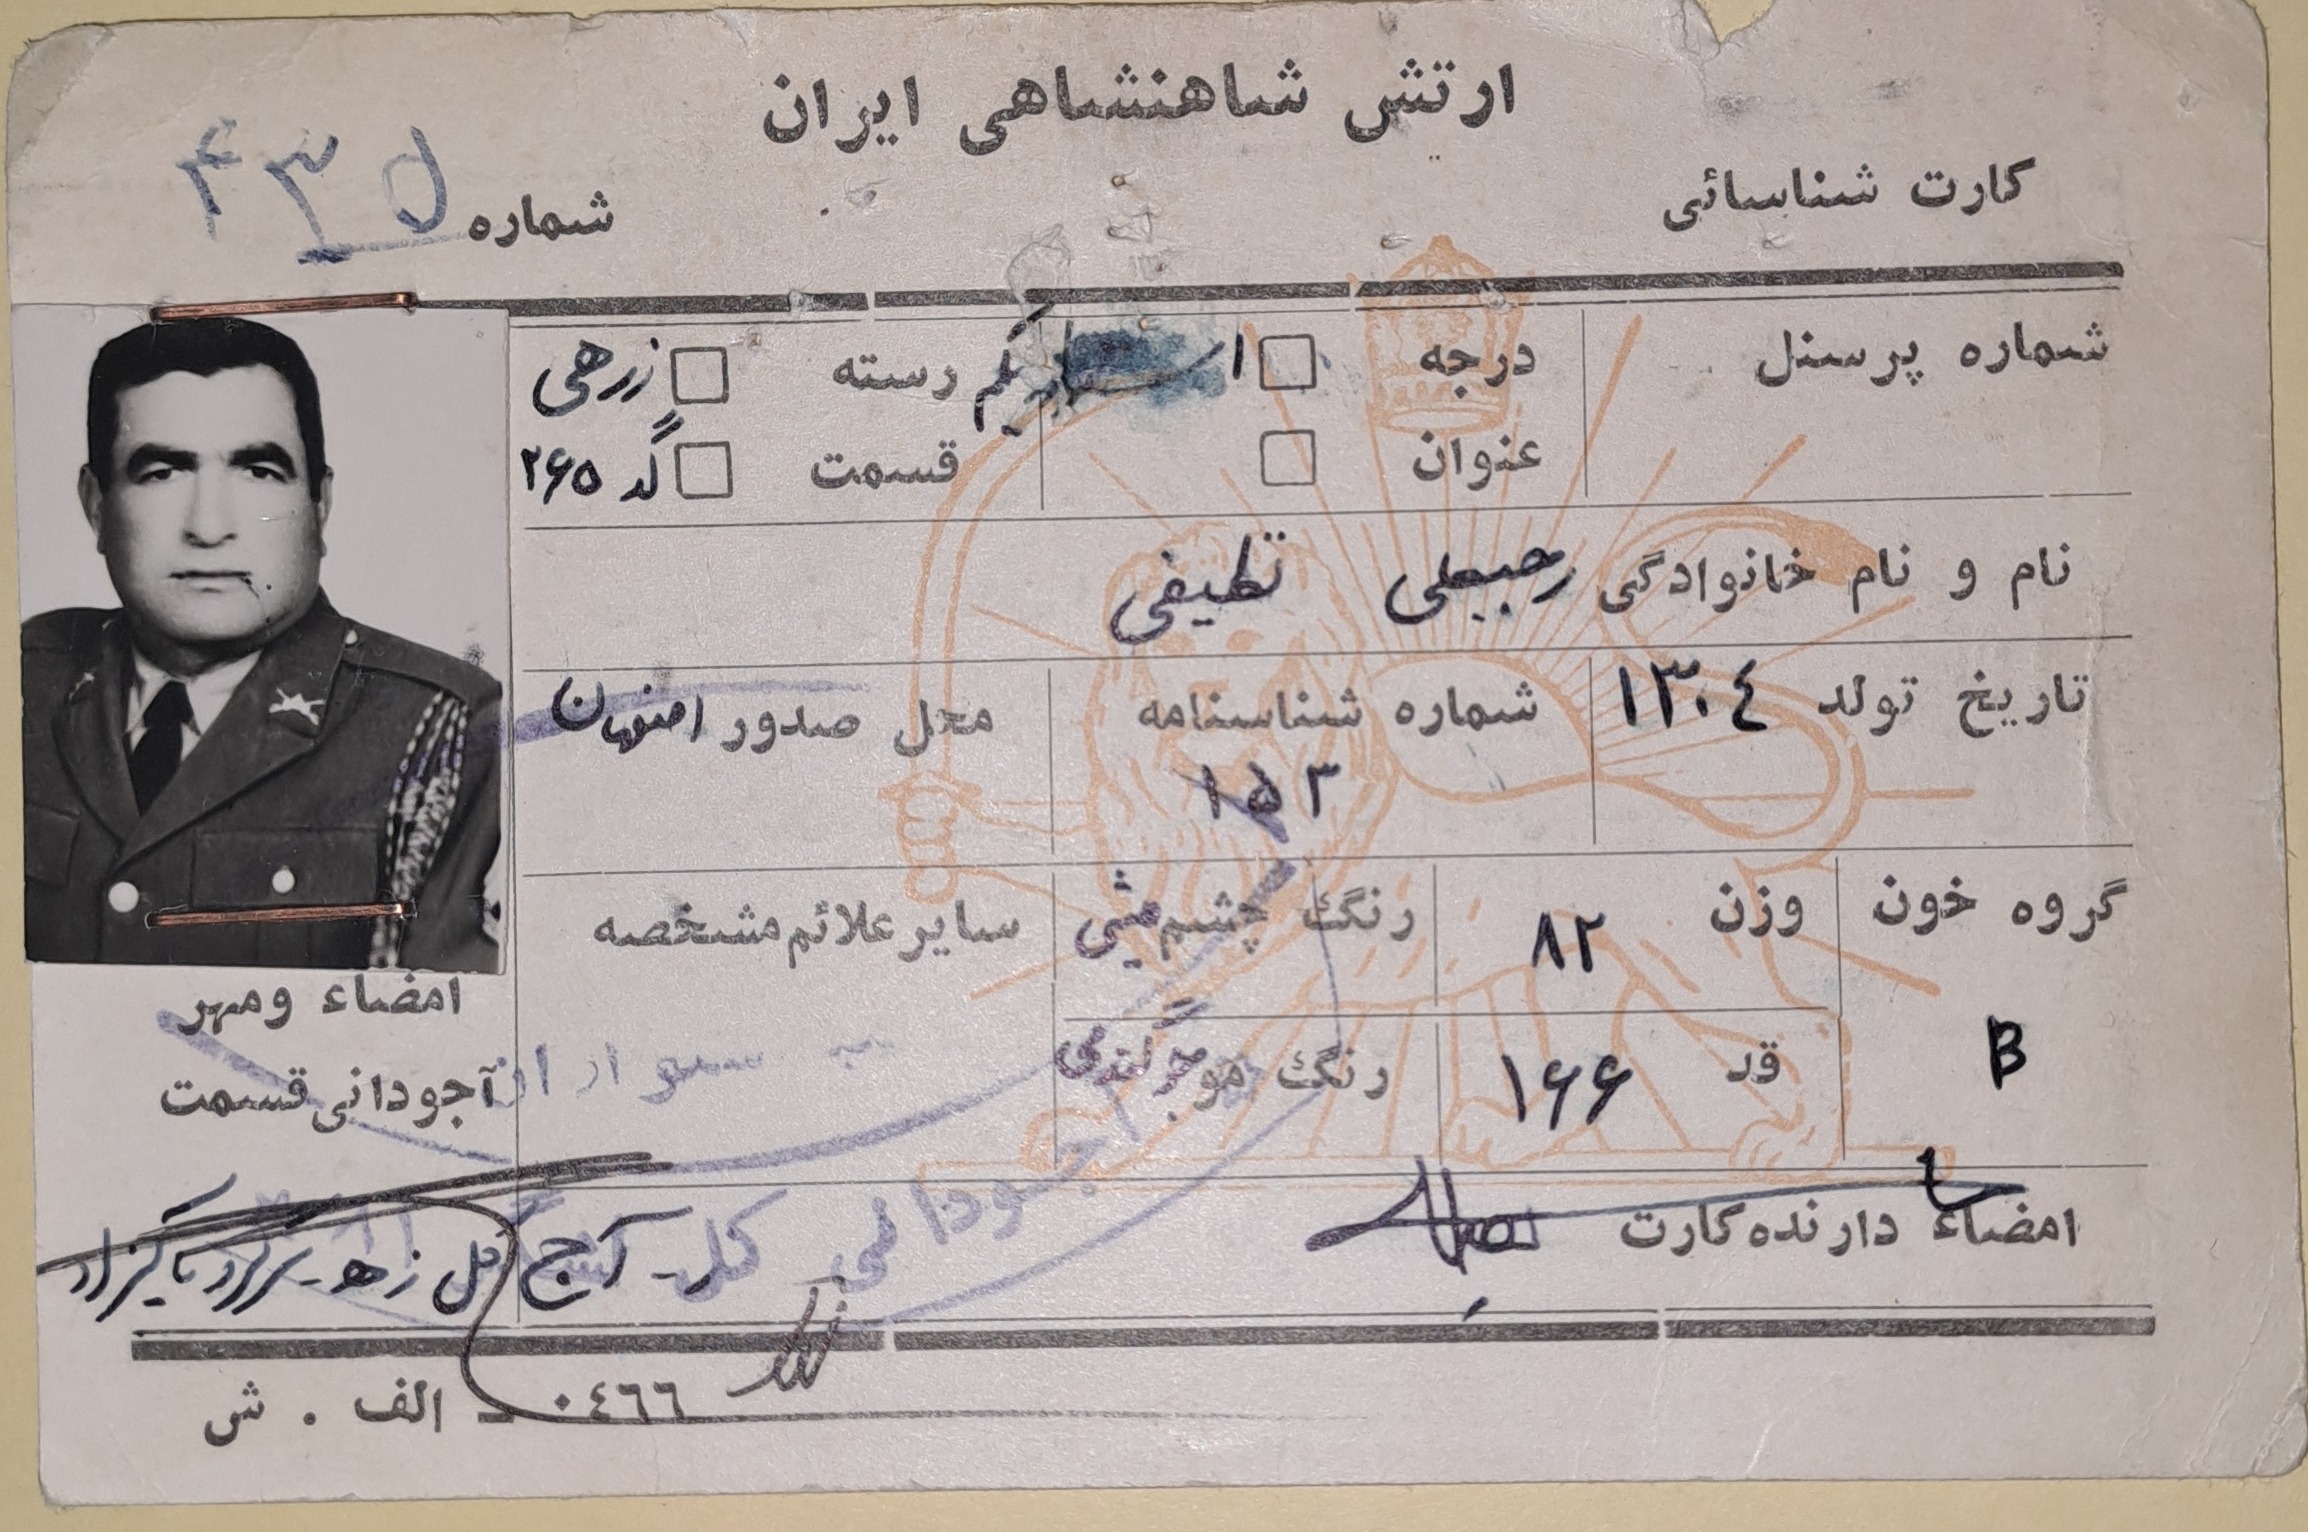 ارتش شاهنشاهی ایران
کارت شناسائی
شماره ۴۳۵
شماره پرسنل
درجه
رسته زرهی
عنوان
قسمت گد ۲۶۵
نام و نام خانوادگی رجبعلی لطیفی
تاریخ تولد ۱۳۰٤
شماره شناسنامه
۱۵۳
محل صدور اصفهان
گروه خون
B
وزن ۸۲
رنگ چشم میشی
سایر علائم مشخصه
قد ۱۶۶
رنگ مو جوگندمی
امضاء ومهر
آجودانی قسمت
امضاء دارنده کارت
الف . ش ۰٤٦٦